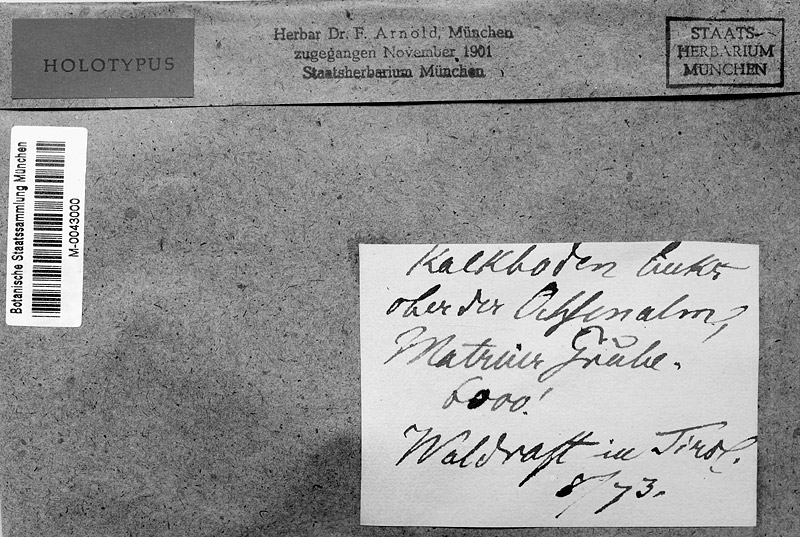 HOLOTYPUS
Herbar Dr. F. Arnold, München
zugegangen November 1901
Staatsherbarium München
STAATS-
HERBARIUM
MÜNCHEN
Botanische Staatssammlung München
M-0043000
Kalkboden links
ober der Ochsenalm,
Matreier Grube.
6000!
Waldraft in Tirol.
8/73.